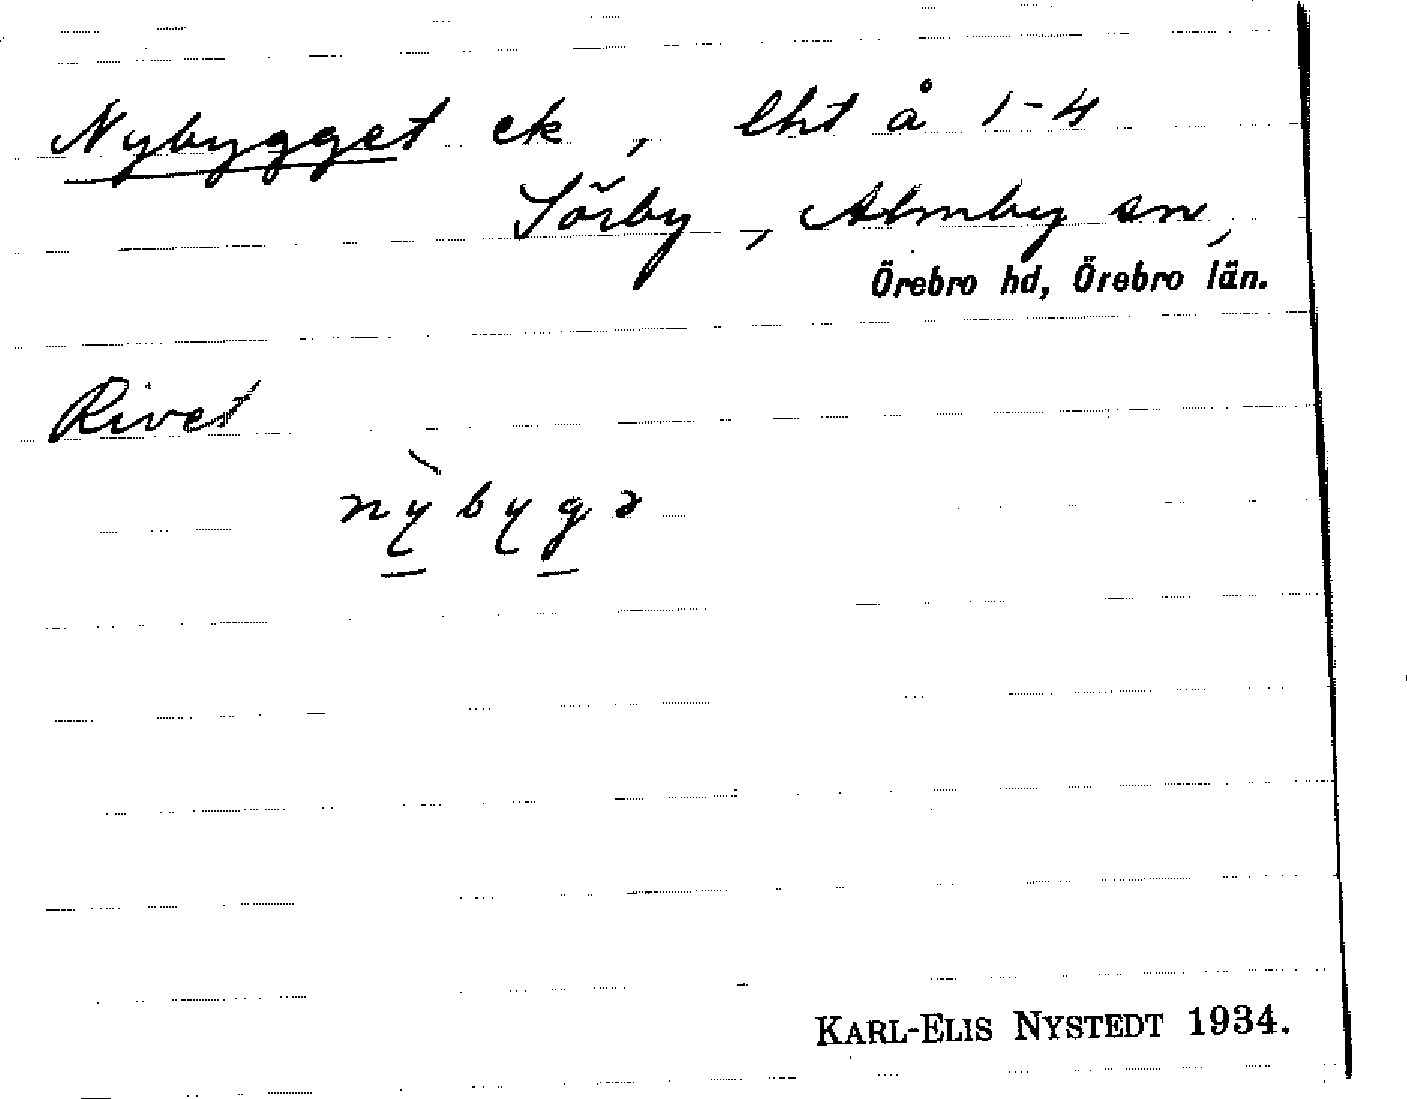 Nybygget ek, lht å 1-4
Sörby, Almby sn,
Örebro hd, Örebro län.
Rivet
nỳbygə
KARL-ELIS NYSTEDT 1934.